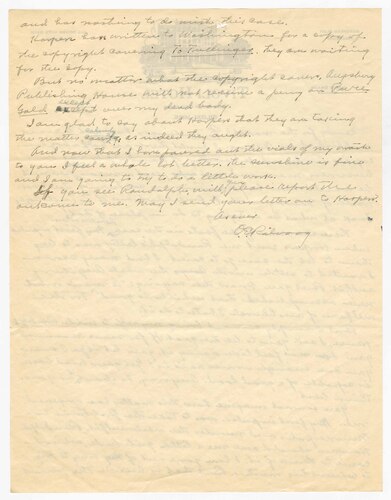 and has nothing to do with this case.
Harper has written to Washington for a copy of
the copyright covering To Tullingar. they are waiting
for the copy.
But no matter what the copyright covers, Augsburg
Publishing House will not receive a penny on Pure
Gold except over my dead body.
I am glad to say about Harpers that they are taking
the matter as indeed they ought.
And now that I have poured out the vials of my wrath
to you I feel a whole lot better. the sunshine is fine
and I am going to try to do a little work.
If you see Randolph, will please report the
outcome to me. May I send your letter on to Harper.
As ever